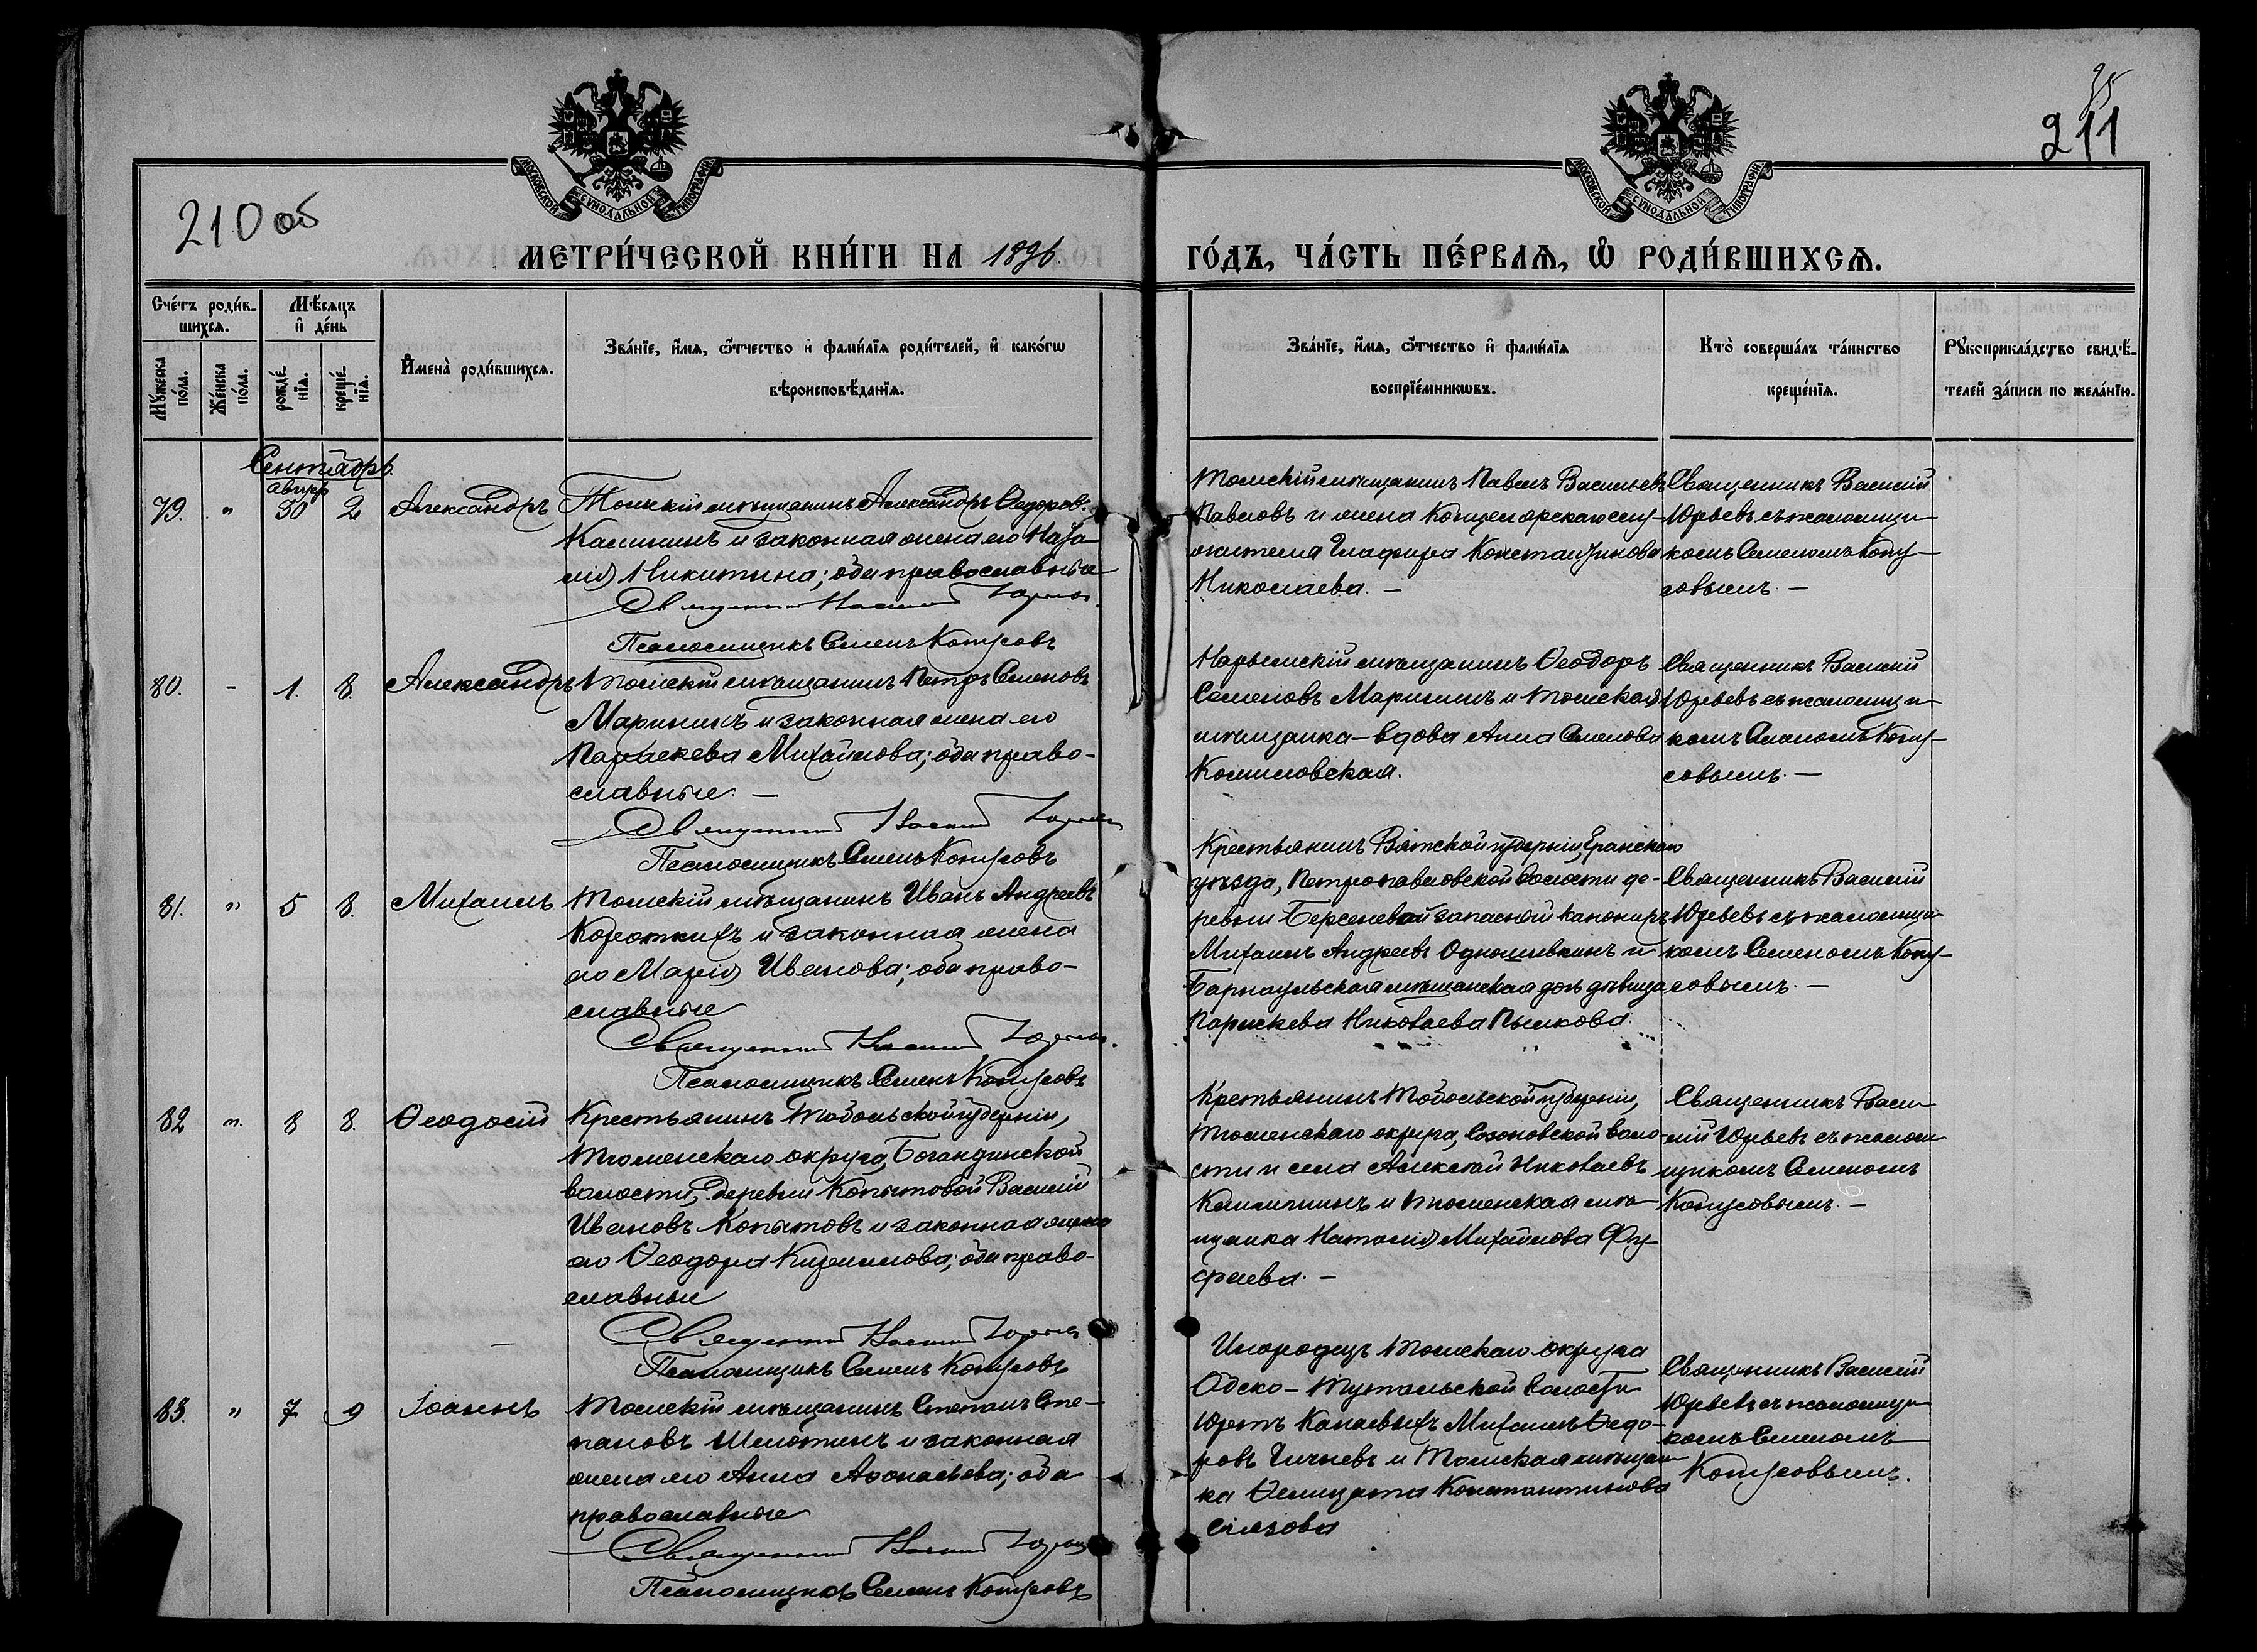 210 об
95
211
МОСКОВСКОЙ СѴНОДАЛЬНОЙ ТИПОГРАФІИ
МОСКОВСКОЙ СѴНОДАЛЬНОЙ ТИПОГРАФІИ
МЕТРИ́ЧЕСКОЙ КНИ́ГИ НА 1896.
ГО́ДЪ, ЧА́СТЬ ПЕ́РВАѦ, Ѿ РОДИ́ВШИХСѦ.
Сче́тъ роди́в-
шихсѧ.
Мѣ́сѧцъ
и҆ де́нь
Мꙋ́жеска
по́ла.
Же́нска
по́ла.
рожде́-
нїѧ.
креще́-
нїѧ.
И҆мена̀ роди́вшихсѧ.
Зва́нїе, и҆́мѧ, ѻ҆́тчество и҆ фами́лїѧ роди́телей, и҆ како́гѡ
вѣроисповѣ́данїѧ.
Зва́нїе, и҆́мѧ, ѻ҆́тчество и҆ фами́лїѧ
воспрїе́мникѡвъ.
Кто̀ соверша́лъ та́инство
креще́нїѧ.
Рꙋкоприкла́дство свидѣ́-
телей за́писи по жела́нїю.
Сентябрь.
август
79. " 30 2 Александръ
Томскій мѣщанинъ Александръ Ѳедоров.
Калининъ и законная жена его Ната-
лія Никитина; оба православные
Священникъ Василій Юрьевъ.
Псаломщикъ Семенъ Котусовъ
Томскій мѣщанинъ Павелъ Васильевъ
Павловъ и жена Канцелярскаго слу-
жителя Глафира Константинова
Николаева. —
Священникъ Василій
Юрьевъ съ псаломщи
комъ Семеномъ Коту-
совымъ. —
80. - 1. 8. Александръ
Томскій мѣщанинъ Петръ Семеновъ
Марининъ и законная жена его
Параскева Михайлова; оба право-
славные. —
Священникъ Василій Юрьевъ
Псаломщикъ Семенъ Котусовъ
Нарымскій мѣщанинъ Ѳеодоръ
Семеновъ Марининъ и Томская
мѣщанка – вдова Анна Семенова
Священникъ Василій
Юрьевъ съ псаломщи
комъ Семеномъ Коту-
совымъ. —
81. " 5 8. Михаилъ
Томскій мѣщанинъ Иванъ Андреевъ
Коротких и законная жена
его Марія Иванова; оба право-
славные
Священникъ Василій Юрьевъ.
Псаломщикъ Семенъ Котусовъ
Крестьянинъ Вятской губерніи, Яранскаго
уѣзда, Петропавловской волости де-
ревни Берсеневой запасной канониръ
Михаилъ Андреевъ и
Барнаульская мѣщанская дочь дѣвица
Параскева Николаева
Священникъ Василій
Юрьевъ съ псаломщи
комъ Семеномъ Коту-
совымъ. —
82 " 8 8. Ѳеодосій
Крестьянинъ Тобольской губерніи,
Тюменскаго округа, Богандинской
волости, деревни Копытовой Василій
Ивановъ Копытовъ и законная жена
его Ѳеодора Кириллова; оба право-
славные
Священникъ Василій Юрьевъ
Псаломщикъ Семенъ Котусовъ
Крестьянинъ Тобольской губерніи,
Тюменскаго округа, Созоновской воло-
сти и села Алексѣй Николаевъ
Калининъ и Тюменская мѣ-
щанка Наталія Михайлова Фу-
фаева. —
Священникъ Васи
лій Юрьевъ съ псалом
щикомъ Семеномъ
Котусовымъ. —
83. " 7 9 Іоаннъ
Томскій мѣщанинъ Степанъ Сте-
пановъ и законная
жена его Анна Аѳонасьева; оба
православные
Священникъ Василій Юрьевъ
Псаломщикъ Семенъ Котусовъ
Инородецъ Томскаго округа
Обско – Тутальской волости
Юртъ Михаилъ Ѳедо-
ровъ и Томская мѣщан
ка Ѳелицата Константинова
Священникъ Василій
Юрьевъ съ псаломщи
комъ Семеномъ
Котусовымъ.